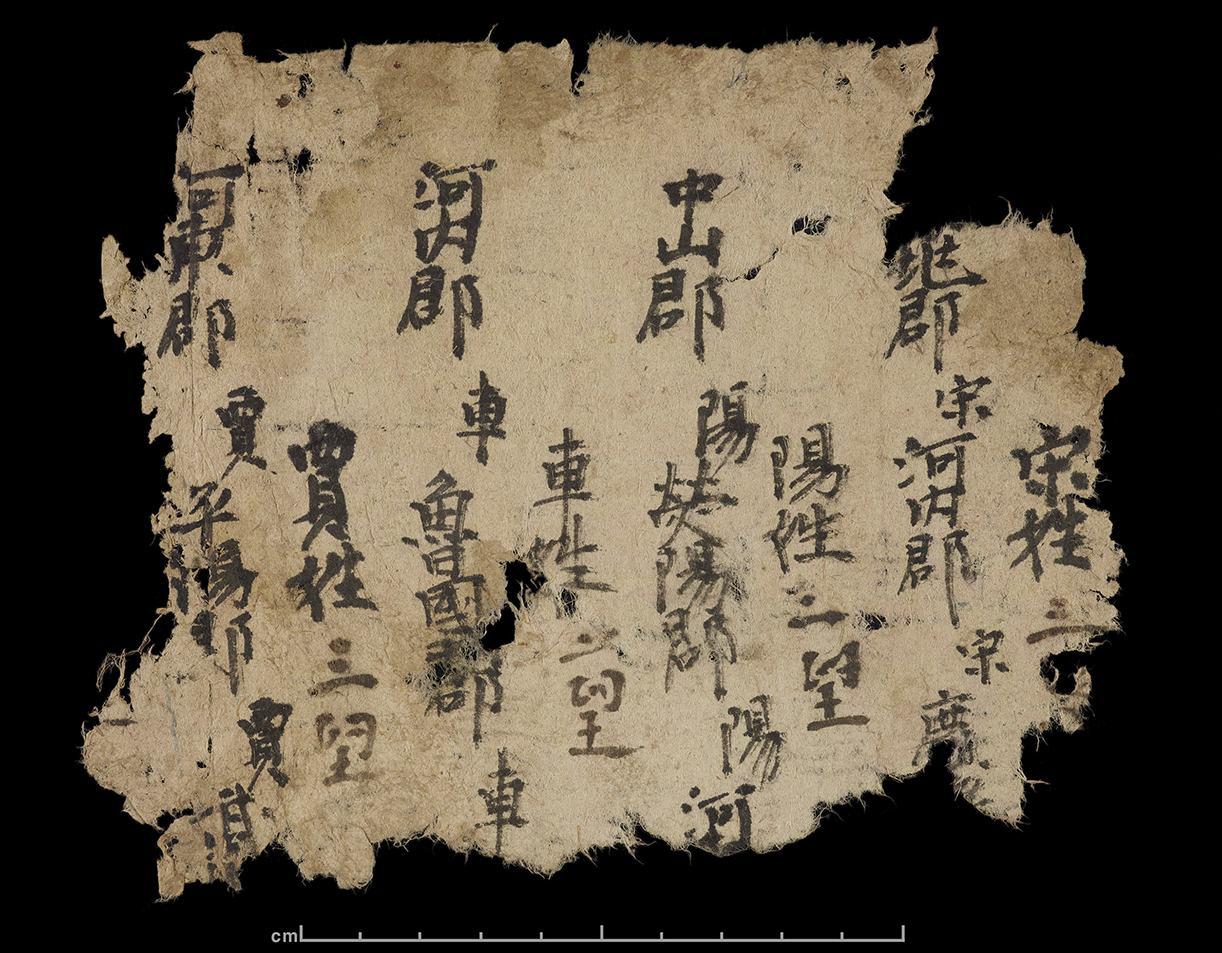 宋姓三
郡宋河内郡宋廣
陽姓三望
中山郡陽熒陽郡陽河
車姓三望
河内郡車魯國郡車
賈姓三望
河東郡賈平陽郡賈
cm